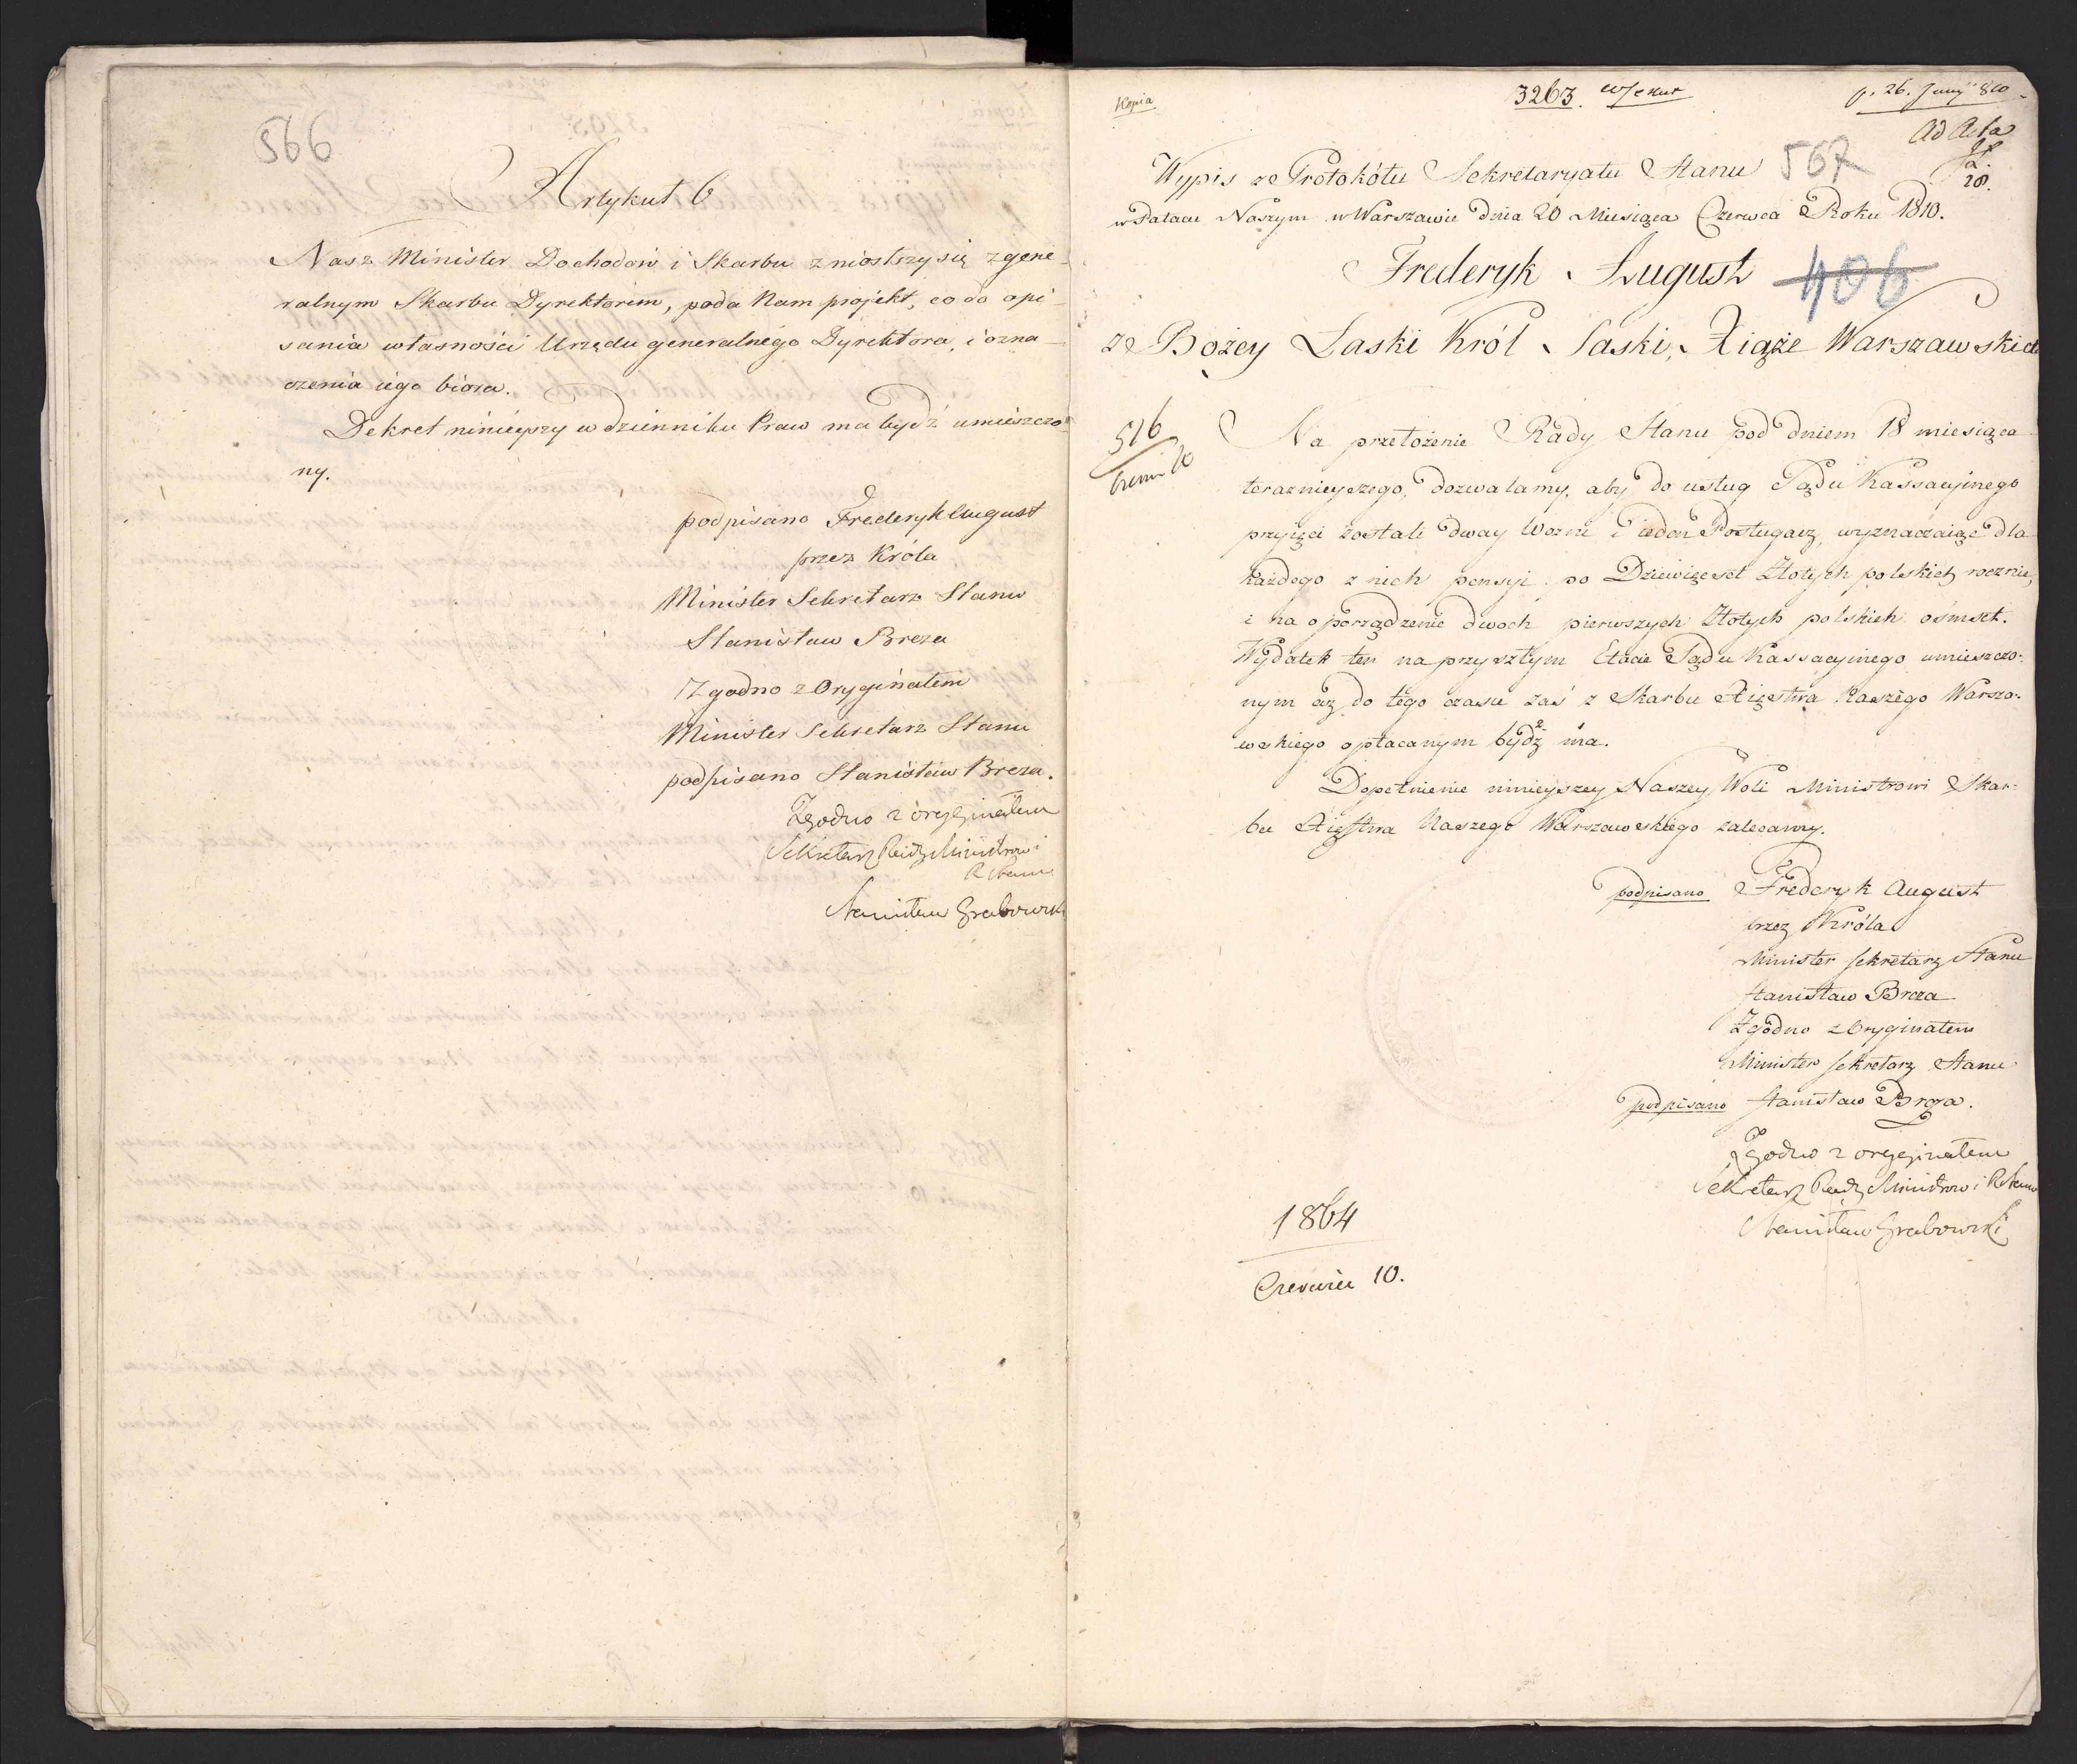 566
Artykuł 6
Nasz Minister Dochodów i Skarbu zniosłszy się z gene-
ralnym Skarbu Dyrektorem, poda Nam projekt, co do opi-
sania własności Urzędu generalnego Dyrektora, i ozna-
czenia iego biora.
Dekret ninieyszy w dzienniku Praw ma bydź umieszczo-
ny.
podpisano Fryderyk August
przez Króla
Minister Sekretarz Stanu
Stanisław Breza
Zgodno z Oryginałem
Minister Sekretarz Stanu
podpisano Stanisław Breza.
Zgodno z oryginałem
Sekretarz Rady Ministrow i
R Stanu
Stanisław Grabowski
Kopia
3263.
p. 26. Juny 810
Ad Acta
567
28.
Wypis ze Protokółu Sekretaryatu Stanu
w Pałacu Naszym w Warszawie dnia 20 Miesiąca Czerwca Roku 1810.
Frederyk August
406
ze Bożey Łaski Król Saski, Xiąże Warszawski etc
516
Czerwi 10
Na przełożenie Rady Stanu pod dniem 18 miesiąca
teraznieyszego, dozwalamy, aby do usług Sądu Kassacyinego
przyięci zostali dway Wozni i ieden Posługacz, wyznaczaiąc dla
każdego z nich pensyi po Dziewięćset Złotych polskich rocznie,
i na oporządzenie dwoch pierwszych Złotych polskich ośmset.
Wydatek ten na przyszłym Etacie Sądu Kassacyinego umieszczo-
nym aż do tego czasu zaś z Skarbu Xięstwa Naszego Warsza-
wskiego opłacanym bydź ma.
Dopełnienie ninieyszey Naszey Woli Ministrowi Skar-
bu Xięstwa Naszego Warszawskiego zalecamy.
podpisano Frederyk August
przez Króla
Minister Sekretarz Stanu
Stanisław Breza
Zgodno z Oryginałem
Minister Sekretarz Stanu
podpisano Stanisław Breza.
Zgodno z oryginałem
Sekretarz Rady Ministrow i R Stanu
Stanisław Grabowski
1864
Czerwiec 10.